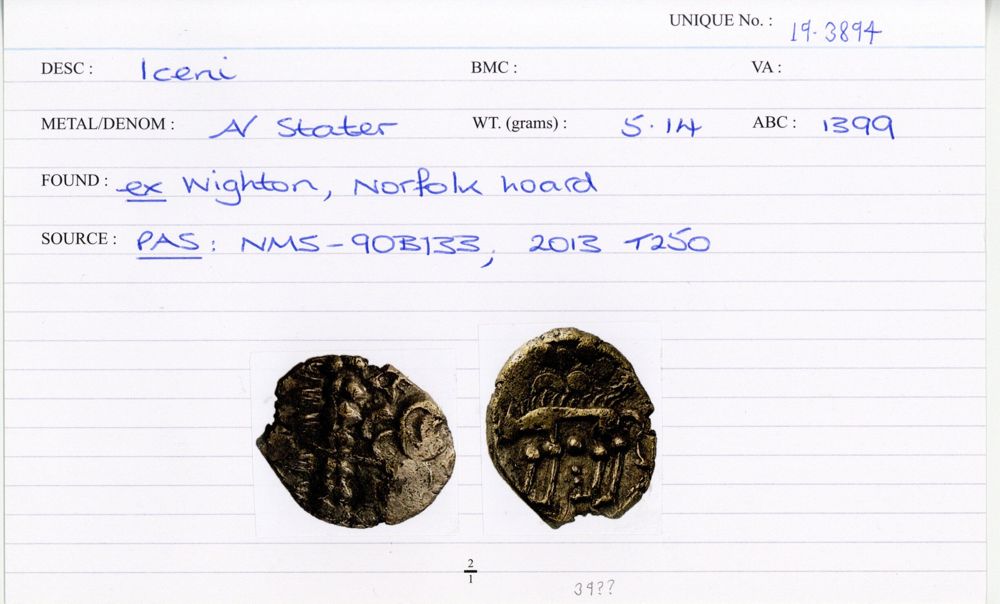 UNIQUE No. : 19.3894
DESC : Iceni BMC : VA :
METAL/DENOM : AV Stater WT. (grams) : 5.14 ABC : 1399
FOUND : ex Wighton, Norfolk hoard
SOURCE : PAS: NMS-90B133, 2013 T250
2
1
39??